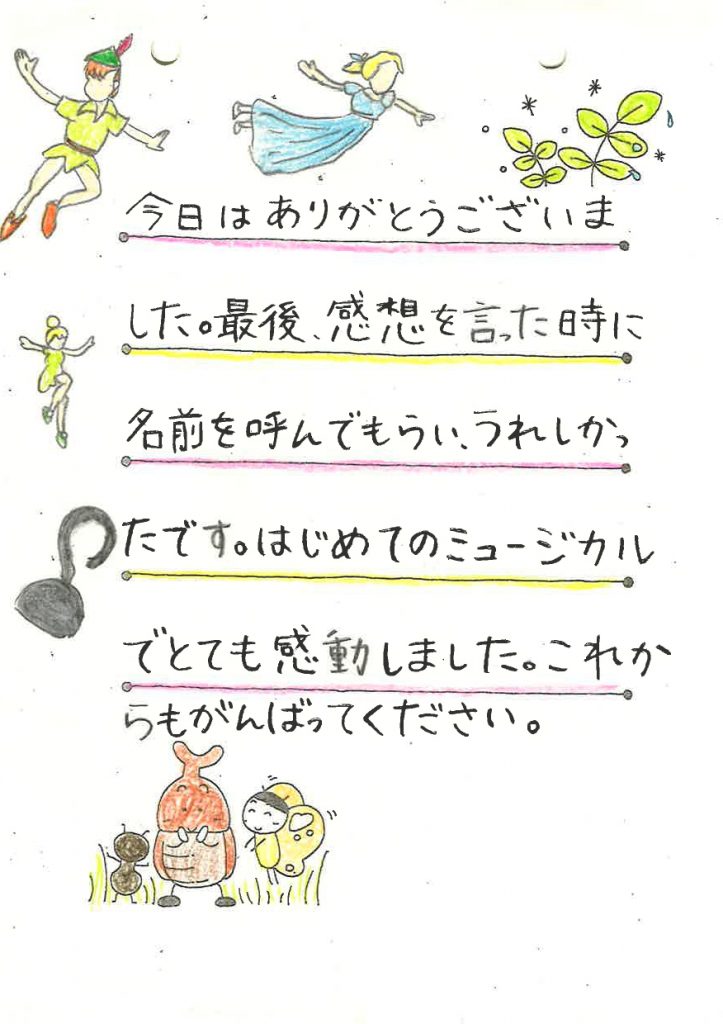 今日はありがとうございま
した。最後、感想を言った時に
名前を呼んでもらい、うれしかっ
たです。はじめてのミュージカル
でとても感動しました。これか
らもがんばってください。